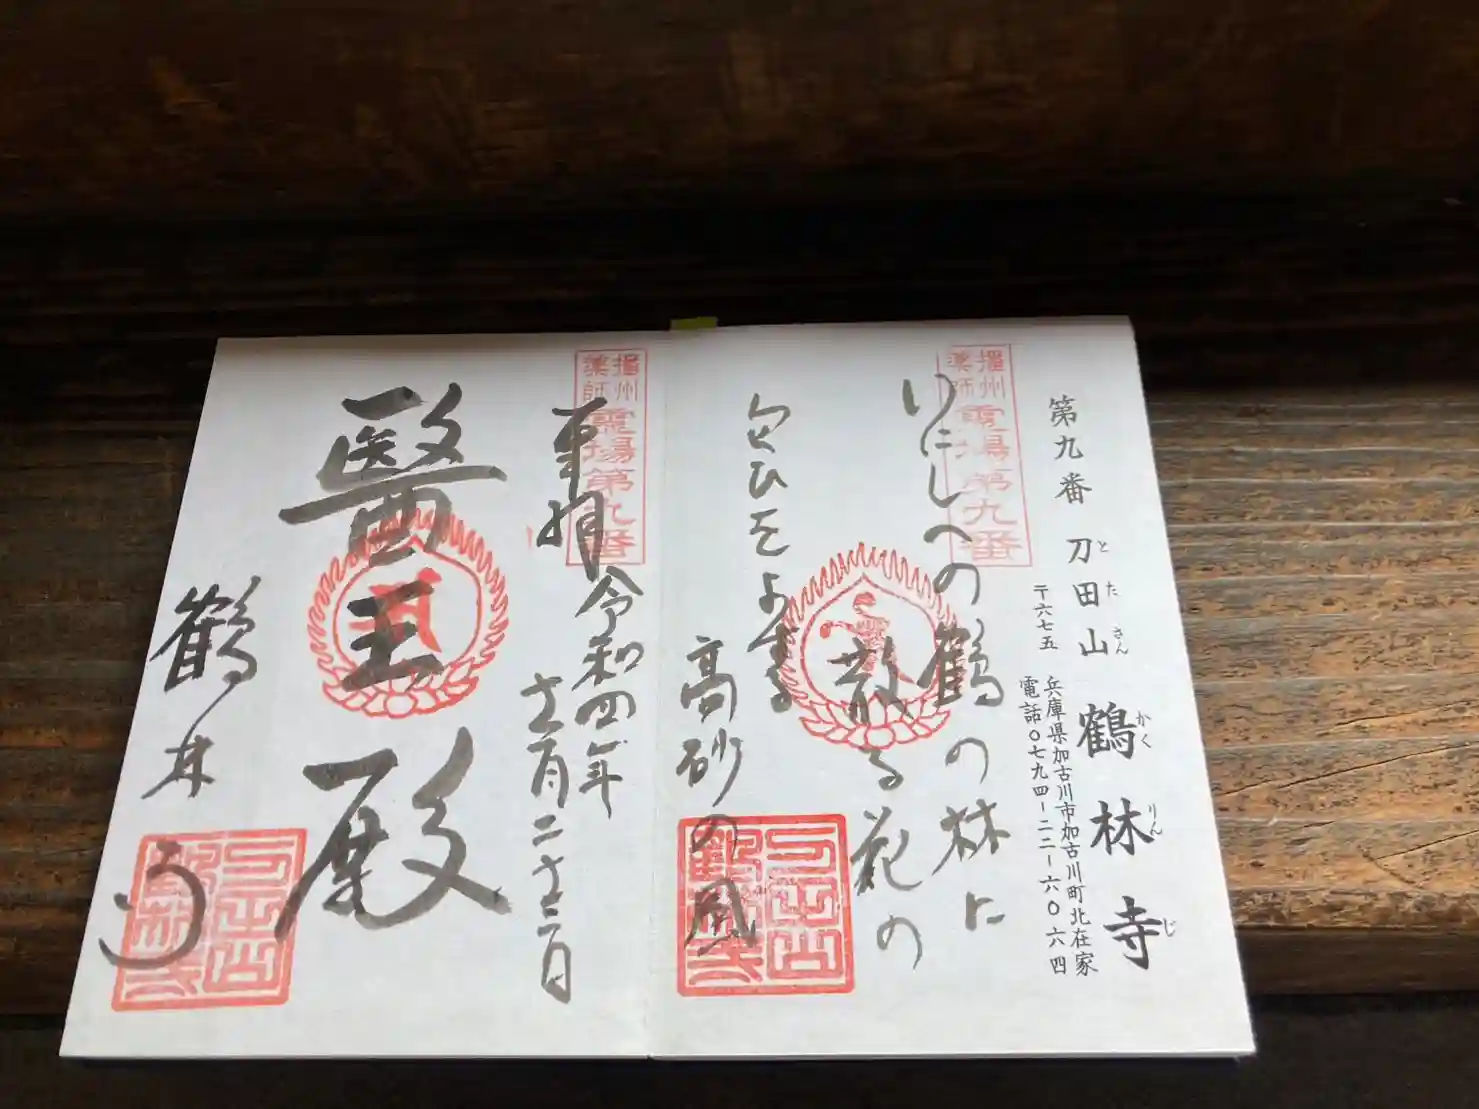 第九番 刀田山 鶴林寺
とたさん かくりんじ
〒六七五 兵庫県加古川市加古川町北在家
電話〇七九四-二二-六〇六四
播州薬師霊場第九番
いにしへの鶴の林に
散る花の
高砂の風
播州薬師霊場第九番
奉拝 令和四年
十二月二十二日
醫王殿
鶴林